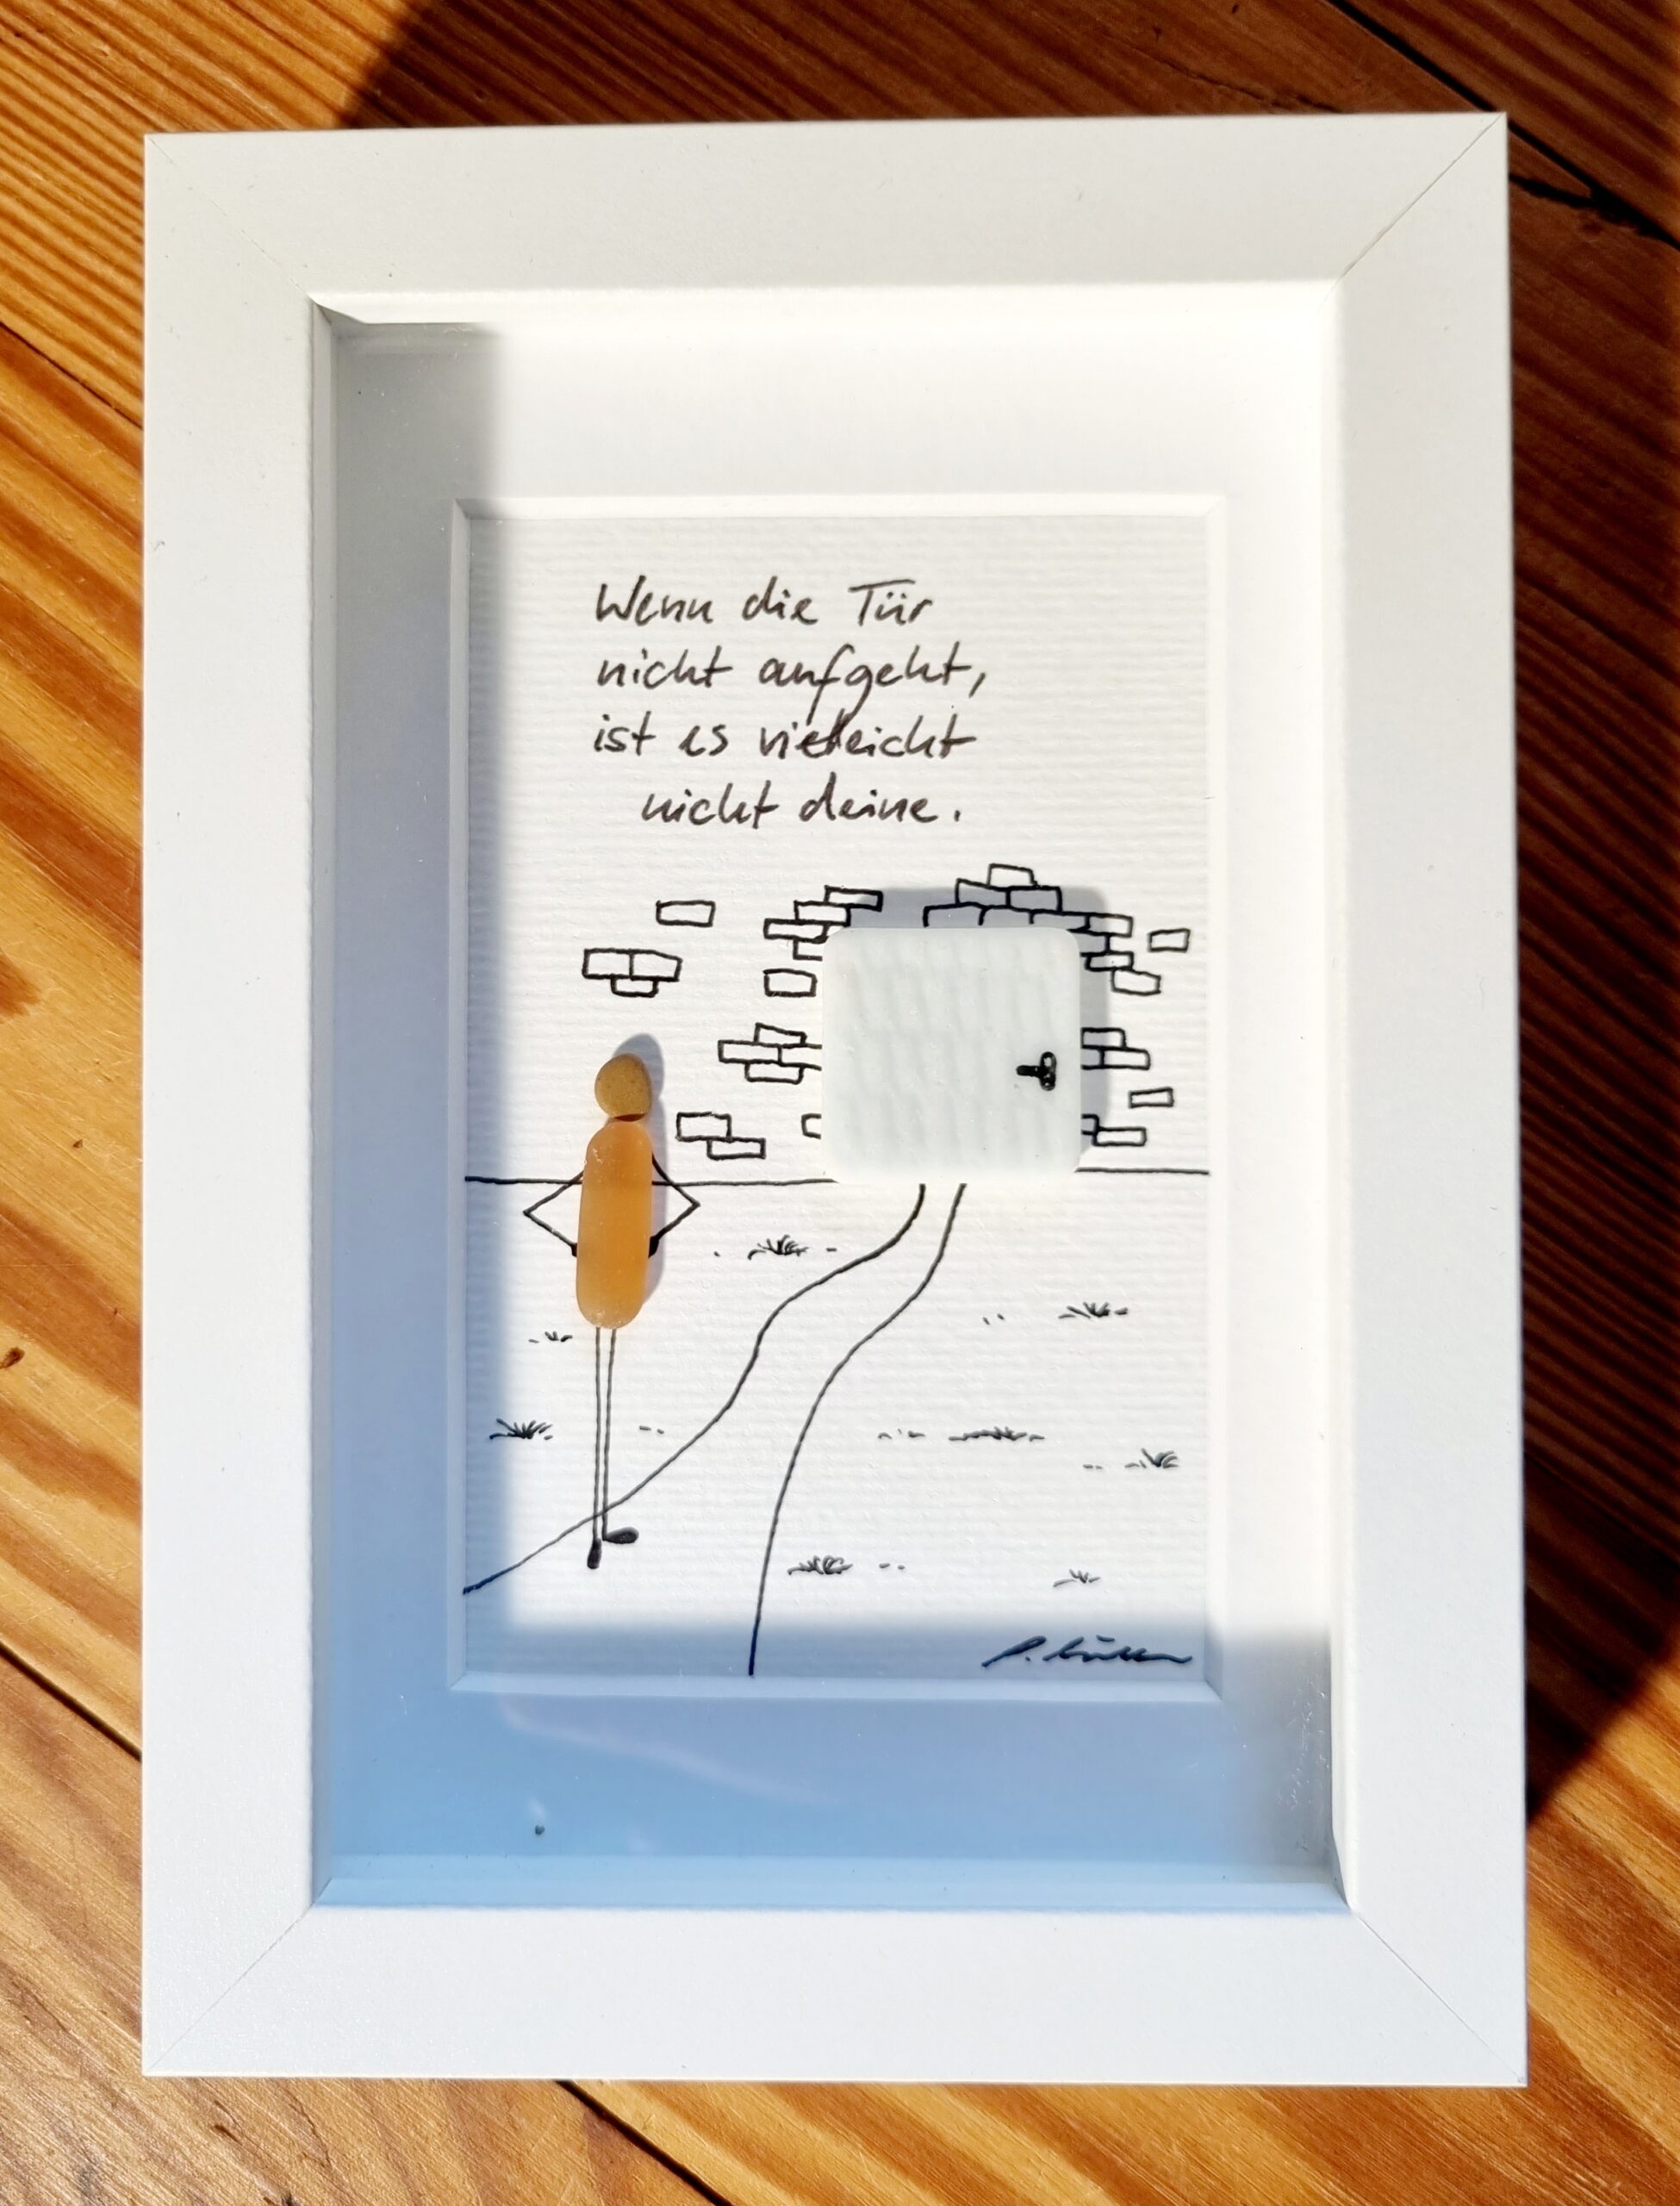 Wenn die Tür
nicht aufgeht,
ist es vielleicht
nicht deine.